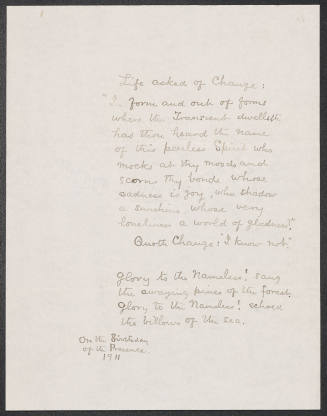 Life asked of Change:
"In form and out of forms
where the Transient dwelleth
hast thou heard the name
of this peerless Spirit who
mocks at thy moods and
scorns thy bonds whose
sadness is joy, whose shadow
a sunshine, whose very
loneliness a world of gladness?"
Quoth Change: "I know not."
Glory to the Nameless! sang
the swaying pines of the forest.
Glory to the Nameless! echoed
the billows of the sea.
On the Birthday
of the Presence.
1911